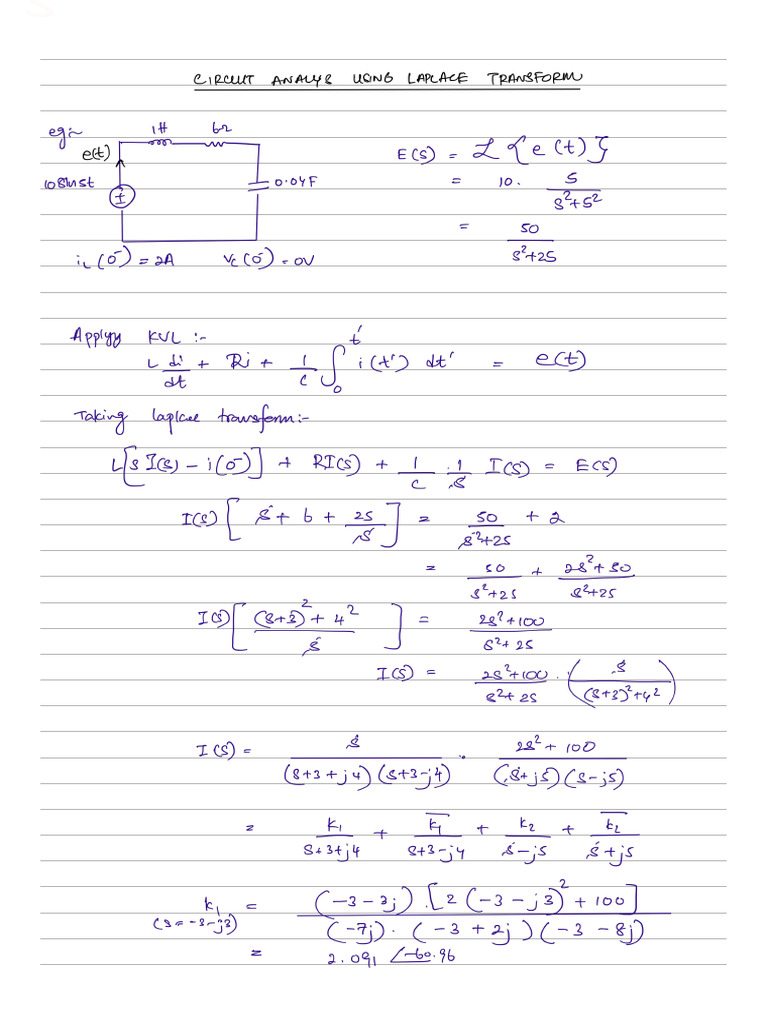 CIRCUIT ANALYS USING LAPLACE TRANSFORM
eg:- 1H 6Ω
e(t)
10sin5t
0.04F
i_L(0⁻) = 2A v_C(0⁻) = 0V
E(s) = ℒ{e(t)}
= 10. 5/(s²+5²)
= 50/(s²+25)
Applyy KVL :-
L di/dt + Ri + 1/C ∫₀^t' i(t') dt' = e(t)
Taking laplace transform:-
L[sI(s) - i(0⁻)] + RI(s) + 1/C . 1/s I(s) = E(s)
I(s)[s + 6 + 25/s] = 50/(s²+25) + 2
= 50/(s²+25) + (2s²+50)/(s²+25)
I(s)[((s+3)² + 4²)/s] = (2s²+100)/(s²+25)
I(s) = (2s²+100)/(s²+25) . (s/((s+3)²+4²))
I(s) = s/((s+3+j4)(s+3-j4)) . (2s²+100)/((s+j5)(s-j5))
= K₁/(s+3+j4) + K̅₁/(s+3-j4) + K₂/(s-j5) + K̅₂/(s+j5)
K₁ (s=-3-j3) = (-3-3j).[2(-3-j3)²+100]/((-7j).(-3+2j)(-3-8j))
= 2.091 ∠-60.96